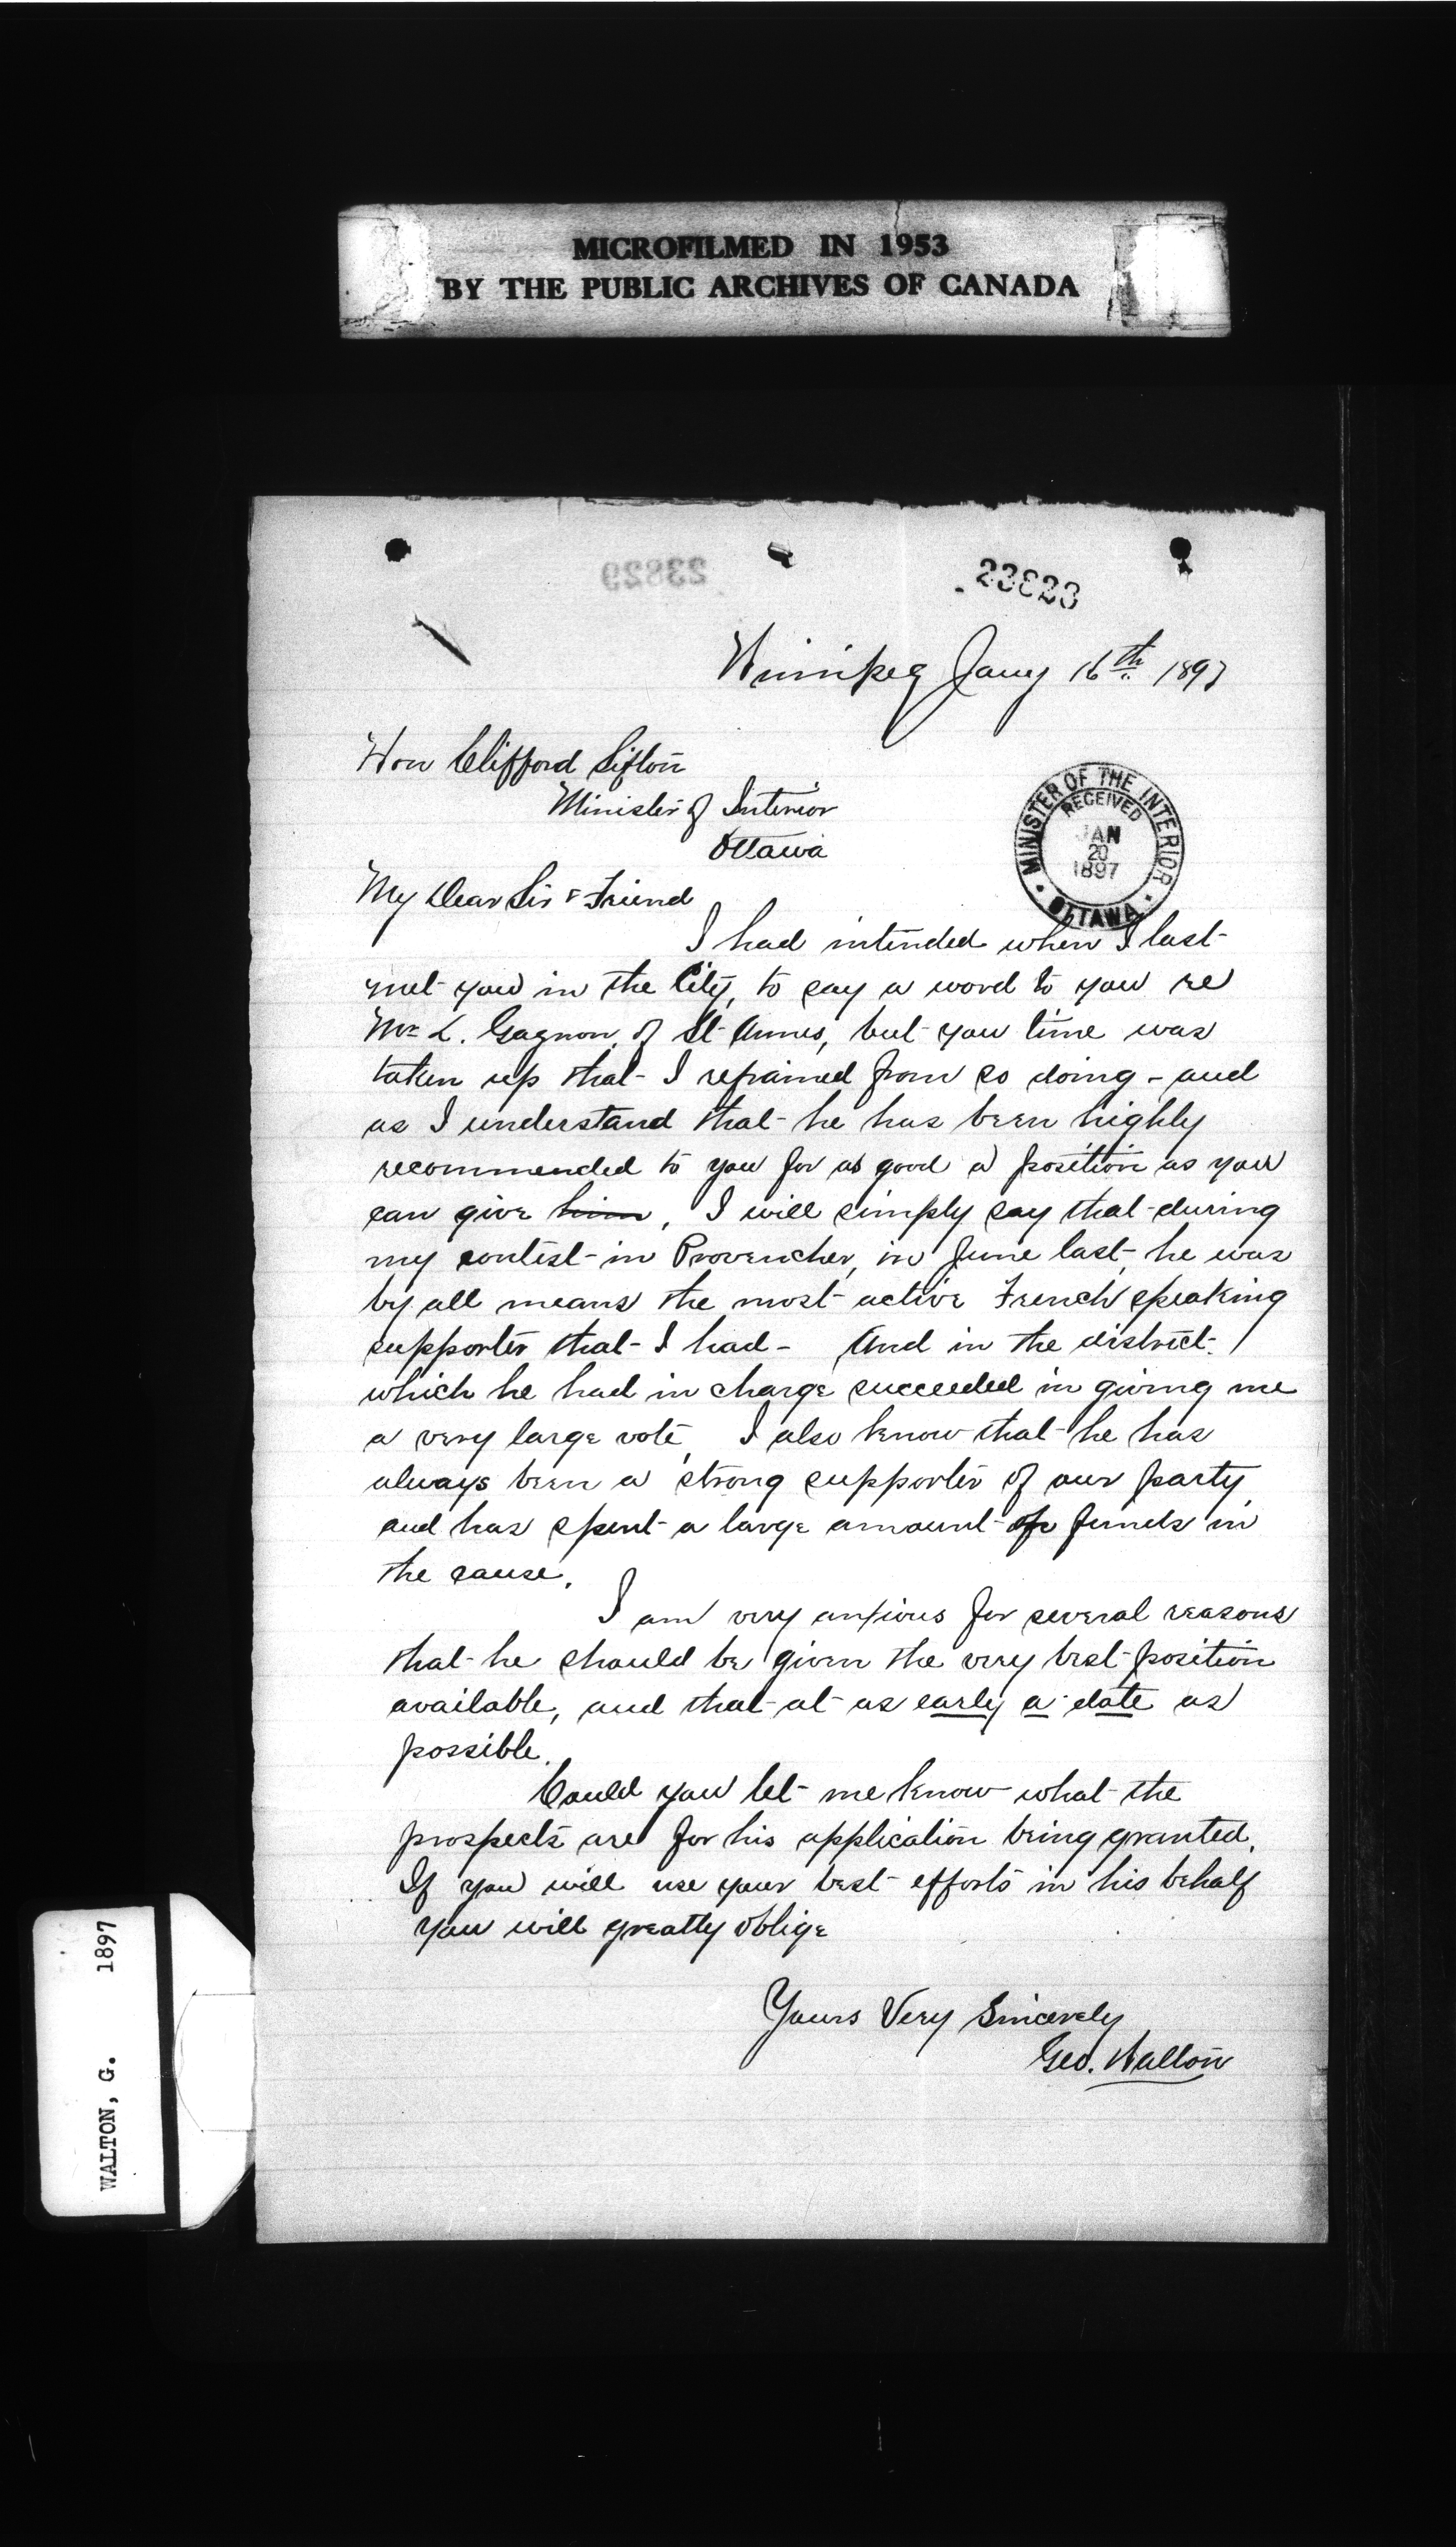 MICROFILMED IN 1953
BY THE PUBLIC ARCHIVES OF CANADA
23829
23823
Winnipeg Jany 16th 1897
Hon Clifford Sifton
Minister of Interior
Ottawa
MINISTER OF THE INTERIOR
RECEIVED
JAN
20
1897
OTTAWA
My Dear Sir & Friend
I had intended when I last
met you in the City, to say a word to you re
Mr L. Gagnon, of St Annes, but you time was
taken up that I refrained from so doing - and
as I understand that he has been highly
recommended to you for as good a position as you
can give him, I will simply say that during
my contest in Provencher, in June last, he was
by all means the most active French speaking
supporter that I had - And in the district
which he had in charge succeeded in giving me
a very large vote, I also know that he has
always been a strong supporter of our party
and has spent a large amount of funds in
the cause.
I am very anxious for several reasons
that he should be given the very best position
available, and that at as early a date as
possible.
Could you let me know what the
prospects are for his application being granted.
If you will use your best efforts in his behalf
you will greatly oblige
Yours Very Sincerely
Geo. Walton
WALTON, G. 1897